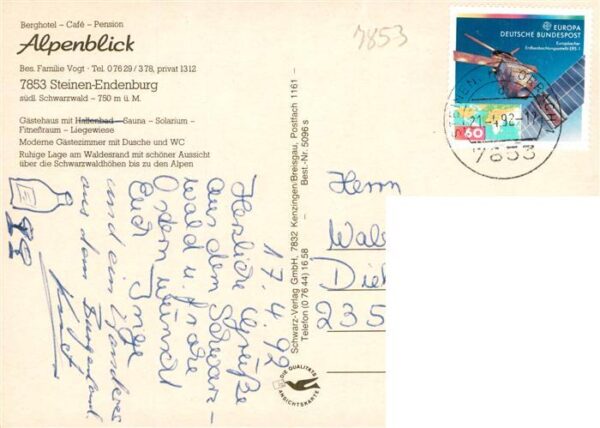 Berghotel – Café – Pension
Alpenblick
Bes. Familie Vogt · Tel. 0 76 29 / 3 78, privat 13 12
7853 Steinen-Endenburg
südl. Schwarzwald – 750 m ü. M.
Gästehaus mit Hallenbad – Sauna – Solarium –
Fitneßraum – Liegewiese
Moderne Gästezimmer mit Dusche und WC
Ruhige Lage am Waldesrand mit schöner Aussicht
über die Schwarzwaldhöhen bis zu den Alpen
17.4.92
Herzliche Grüße
aus dem Schwarz-
wald u. frohe
Ostern wünscht
Euch Inge
und ein
aus dem Burgenland
Schwarz-Verlag GmbH, 7832 Kenzingen/Breisgau, Postfach 1161 –
Telefon (0 76 44) 16 58 – Best.-Nr. 5096 s
DIE QUALITÄTS
ANSICHTSKARTE
7853
EUROPA
DEUTSCHE BUNDESPOST
Europäischer
Erdbeobachtungssatellit ERS-1
60
21.4.92-17
7853
Herrn
Wal
Die
235